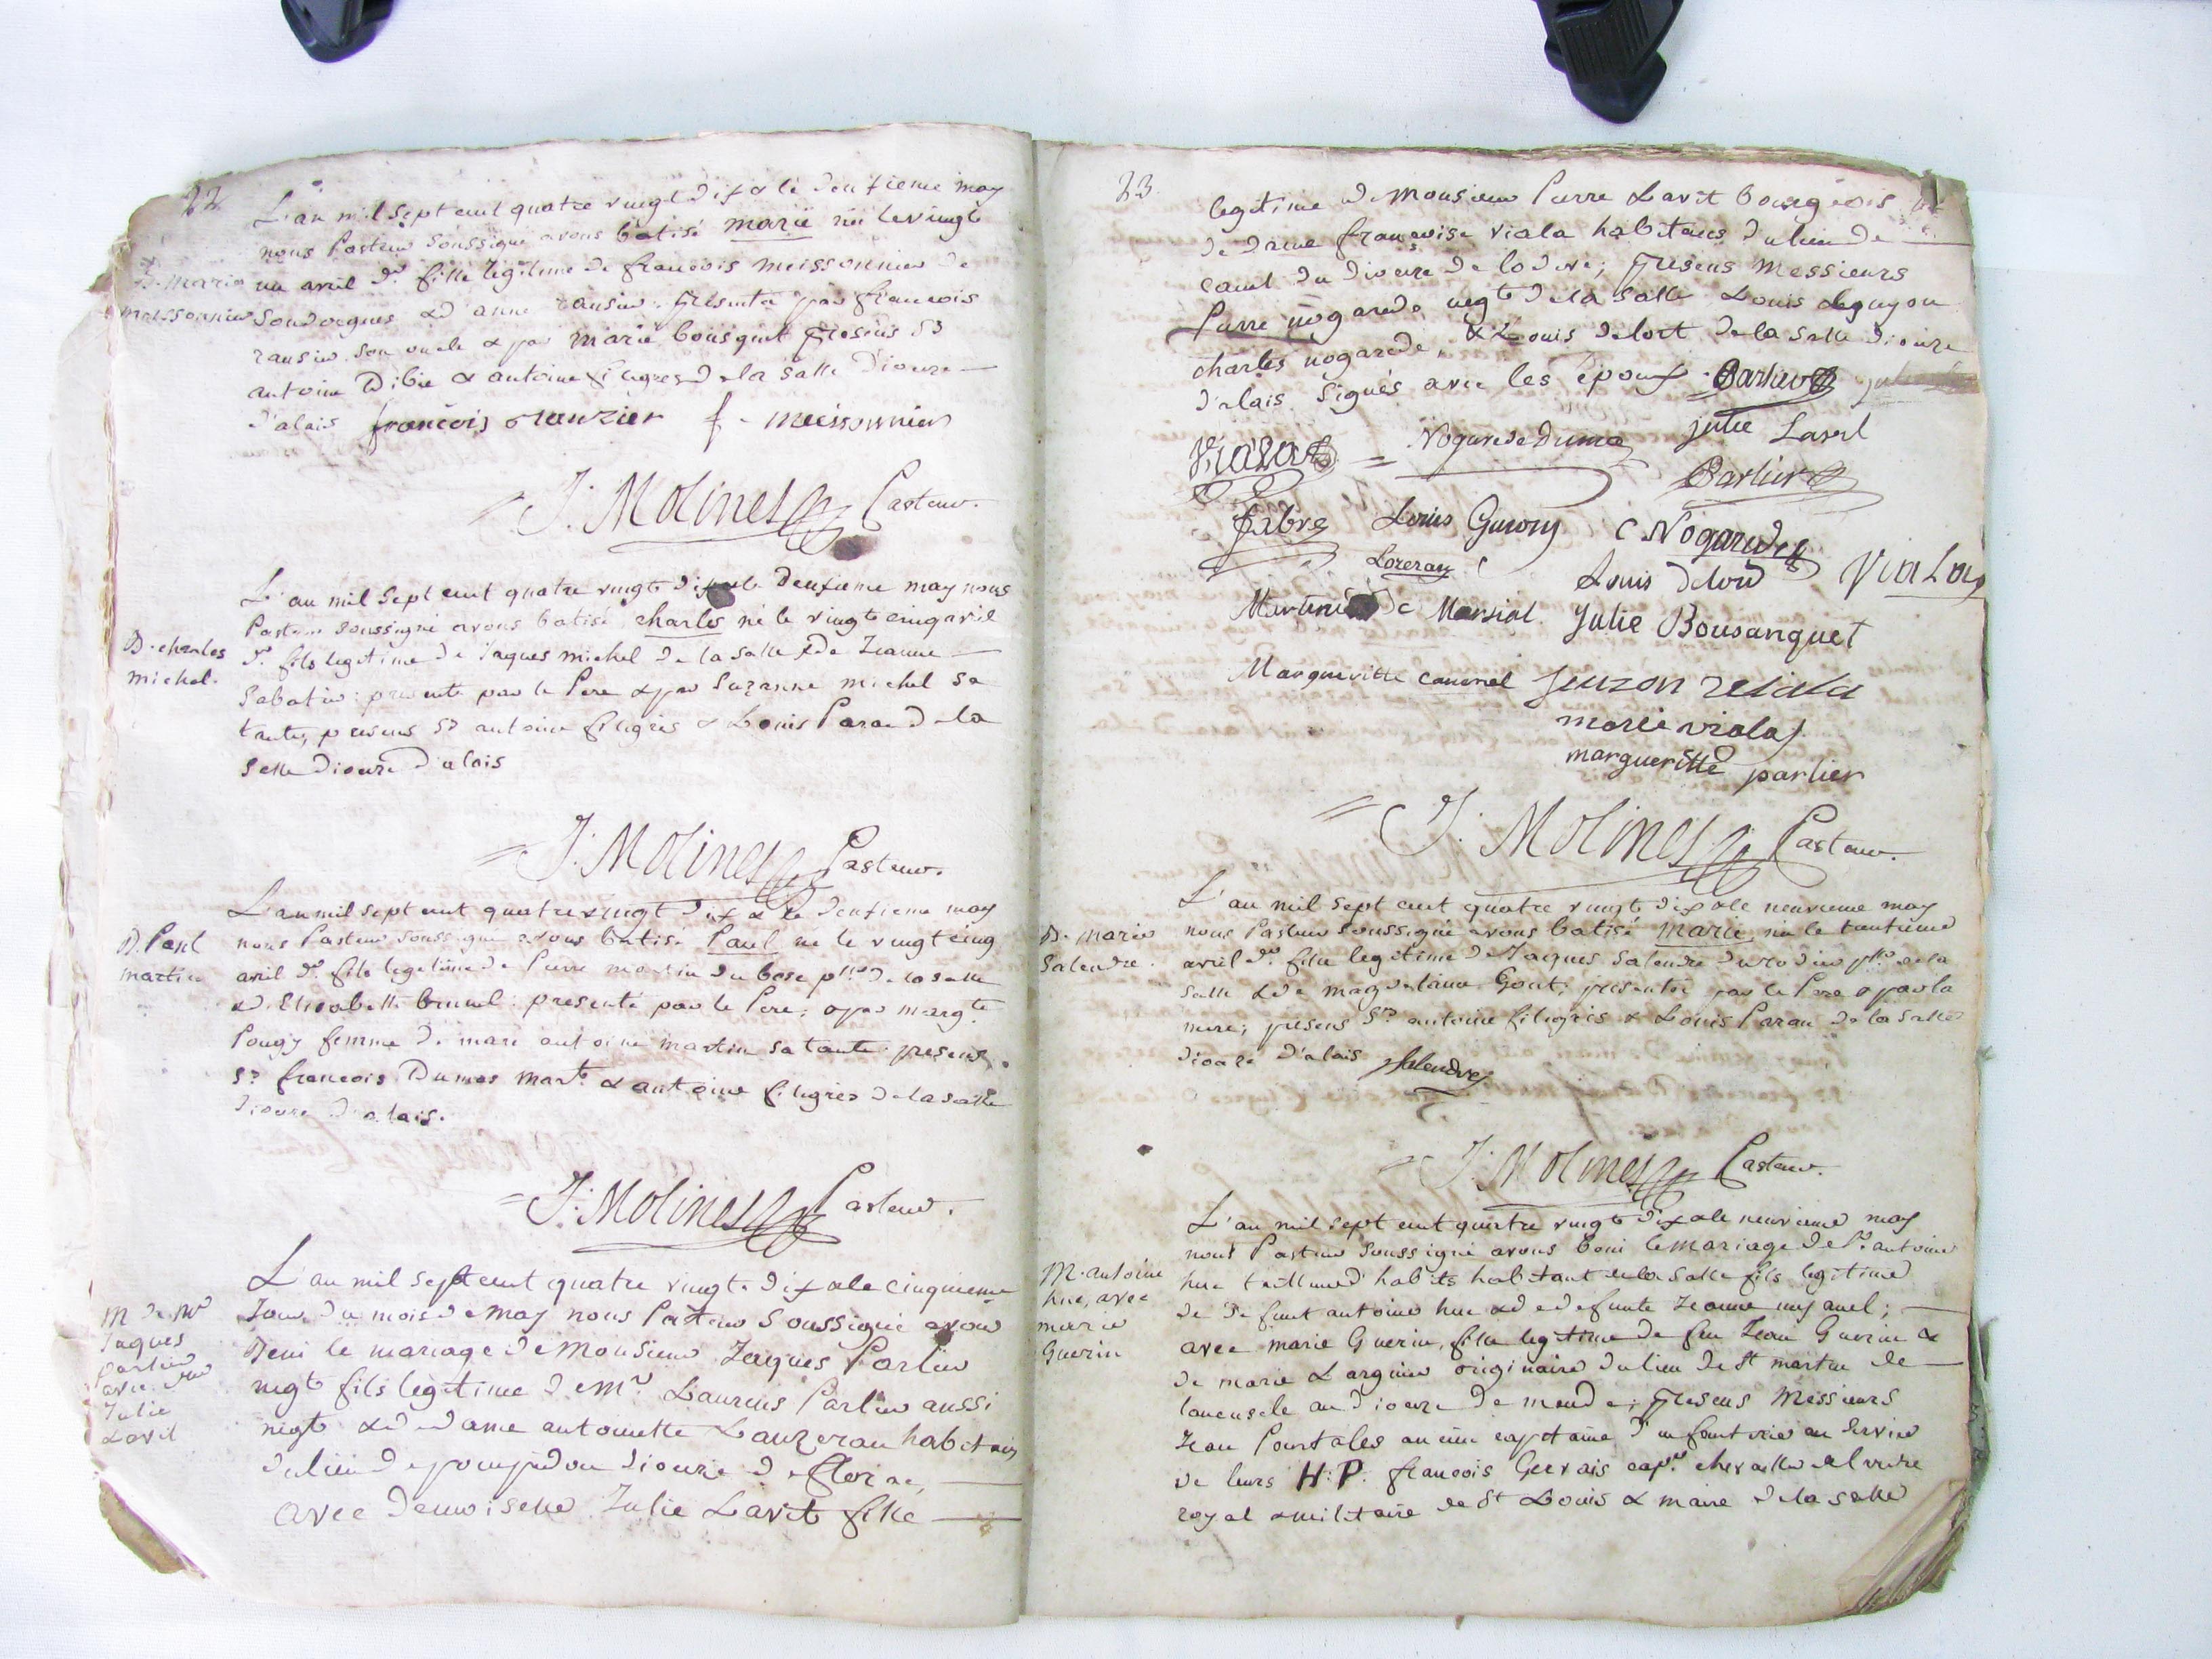 22
L'an mil sept cent quatre vingt dix & le deuxieme may
nous Pasteur soussigné avons batisé marie née le vingt
B. marie
meissonnier
un avril dr. fille legitime de francois meissonnier de
Soudorgues & d'anne rausier: presentée par francois
rausier son oncle & par marie bousquet presens Sr
antoine Dibie & antoine filigres de la salle dioceze
d'alais françois rauzier f. meissonnier
J: Molines Pasteur.
L'an mil sept cent quatre vingt dix & le deuxieme may nous
Pasteur soussigné avons batisé charles né le vingt cinq avril
B. charles
michel.
dr. fils legitime de Jaques michel de la salle & de Jeanne
Sabatier: presenté par le Pere & par Suzanne michel sa
tante, presens Sr antoine filigres & Louis Paran de la
salle dioceze d'alais
J: Molines Pasteur.
L'an mil sept cent quatre vingt dix & le deuxieme may
B. Paul
martin
nous Pasteur soussigné avons batisé Paul né le vingt cinq
avril dr. fils legitime de Pierre martin du bosc psse de la salle
& d'Elisabeth brunel: presenté par le Pere, & par margte
Pougy femme de marc antoine martin sa tante: presens
Sr francois Dumas mart. & antoine filigres de la salle
dioceze d'alais.
J: Molines Pasteur.
L'an mil sept cent quatre vingt dix & le cinquieme
M de Mr
Jaques
Parlier
avec
Julie
Lavit
Jour du mois de may nous Pasteur soussigné avons
beni le mariage de Monsieur Jaques Parlier
negt fils legitime de Mr Laurens Parlier aussi
negt & de dame antoinette Lauzeran habitans
du lieu de pompidou dioceze de florac,
avec demoiselle Julie Lavit fille
23.
legitime de Monsieur Pierre Lavit bourgeois &
de dame françoise viala habitans du lieu de
canet du dioceze de lodeve; presens Messieurs
Pierre nogarede negt de la salle Louis Leguyon
charles nogarede, & Louis delort de la salle dioceze
d'alais signés avec les epoux. Parlier
Viala = Nogarede Dumas julie Lavit
Parlier
fabre Louis Guion C Nogarede
Lozeran Louis delord Viala
Martine C Marsial. Julie Bousanquet
Margueritte Suzon
marie viala
margueritte parlier
J: Molines Pasteur.
L'an mil sept cent quatre vingt dix & le neuvieme may
B. marie
Salendre.
nous Pasteur soussigné avons batisé marie, née le trentieme
avril dr. fille legitime de Jaques Salendre psse de la
salle & de magdelaine Gout; presentée par le Pere & par la
mere; presens Srs antoine filigres & Louis Paran de la salle
dioceze d'alais Salendres
J: Molines Pasteur.
L'an mil sept cent quatre vingt dix & le neuvieme may
nous Pasteur soussigné avons beni le mariage de Sr. antoine
M. antoine
huc, avec
marie
Guerin
huc tailleur d'habits habitant de la salle fils legitime
de defunt antoine huc & de defunte Jeanne
avec marie Guerin, fille legitime de feu Jean Guerin &
de marie Largier originaire du lieu de St martin de
lancuscle au dioceze de mende; presens Messieurs
Jean Pourtales ancien capitaine d'infanterie au service
de leurs H: P. francois Gervais capne chevallier de l'ordre
royal & militaire de St Louis & maire de la salle